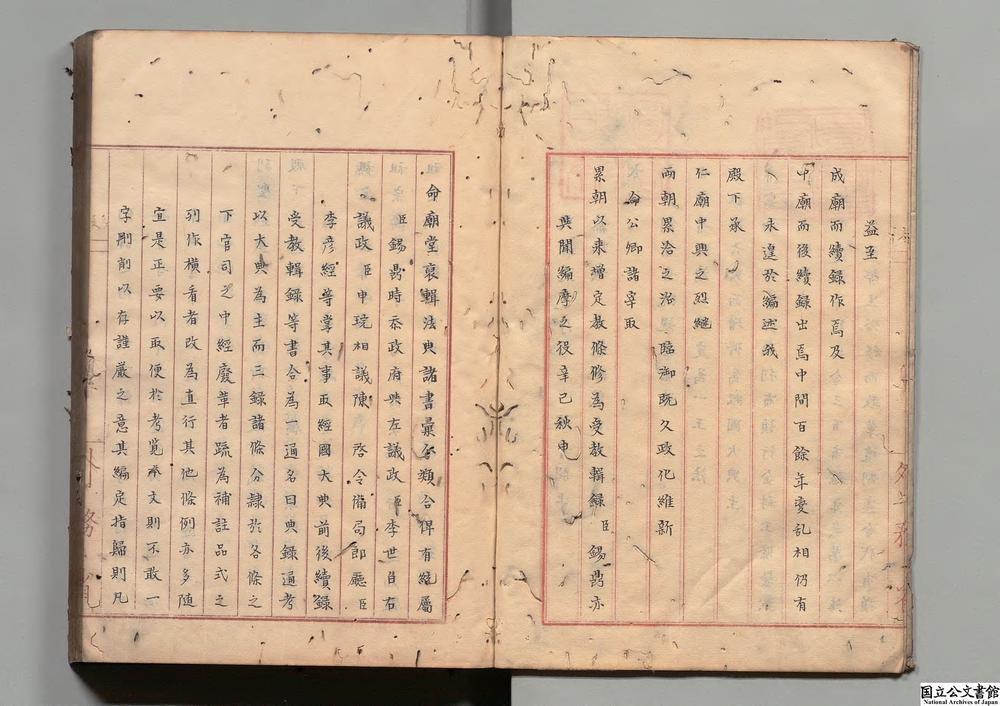 益至
成廟而續錄作焉及
中廟而後續錄出焉中間百餘年變乱相仍有
未遑於編述我
殿下承
仁廟中興之烈継
兩朝累洽之治臨御既久政化維新
命公卿諸宰取
累朝以來增定教條修為受教輯錄臣錫鼎亦
與聞編摩之役辛巳秋申
命廟堂裒輯法典諸書彙分類合俾有統屬
臣錫鼎時忝政府與左議政臣李世白右
議政臣申琓相議陳啓令備局郎廳臣
李彦經等掌其事取經國大典前後續錄
受教輯錄等書合為一通名曰典錄通考
以大典為主而三錄諸條分隷於各條之
下官司之中經廢革者疏為補註品式之
列作橫看者改為直行其他條例亦多随
宜是正要以取便於考覽本文則不敢一
字刪削以存謹嚴之意其編定指歸則凡
外務省
国立公文書館
National Archives of Japan